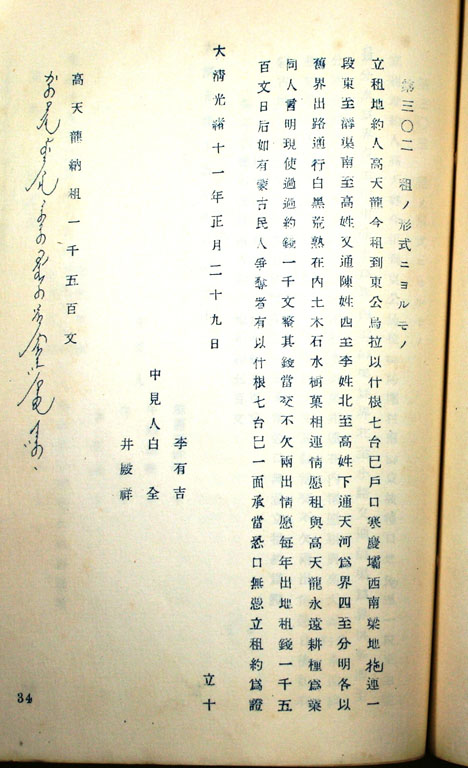 第三〇二 租ノ形式ニヨルモノ
立租地約人高天龍今租到東公烏拉以什根七台巳戶口寒慶壩西南梁地拖連一
段東至 南至高姓又通陳姓西至李姓北至高姓下通天河爲界四至分明各以
舊界出路通行白黑荒熟在內土木石水 菓相連情愿租與高天龍永遠耕種爲業
同人言明現使過過約錢一千文整其錢當交不欠兩出情愿每年出地租錢一千五
百文日后如有蒙古民人爭奪者有以什根七台巳一面承當恐口無憑立租約爲證
大淸光緖十一年正月二十九日 立十
李有吉
中見人白 全
井殿祥
高天龍納租一千五百文
34